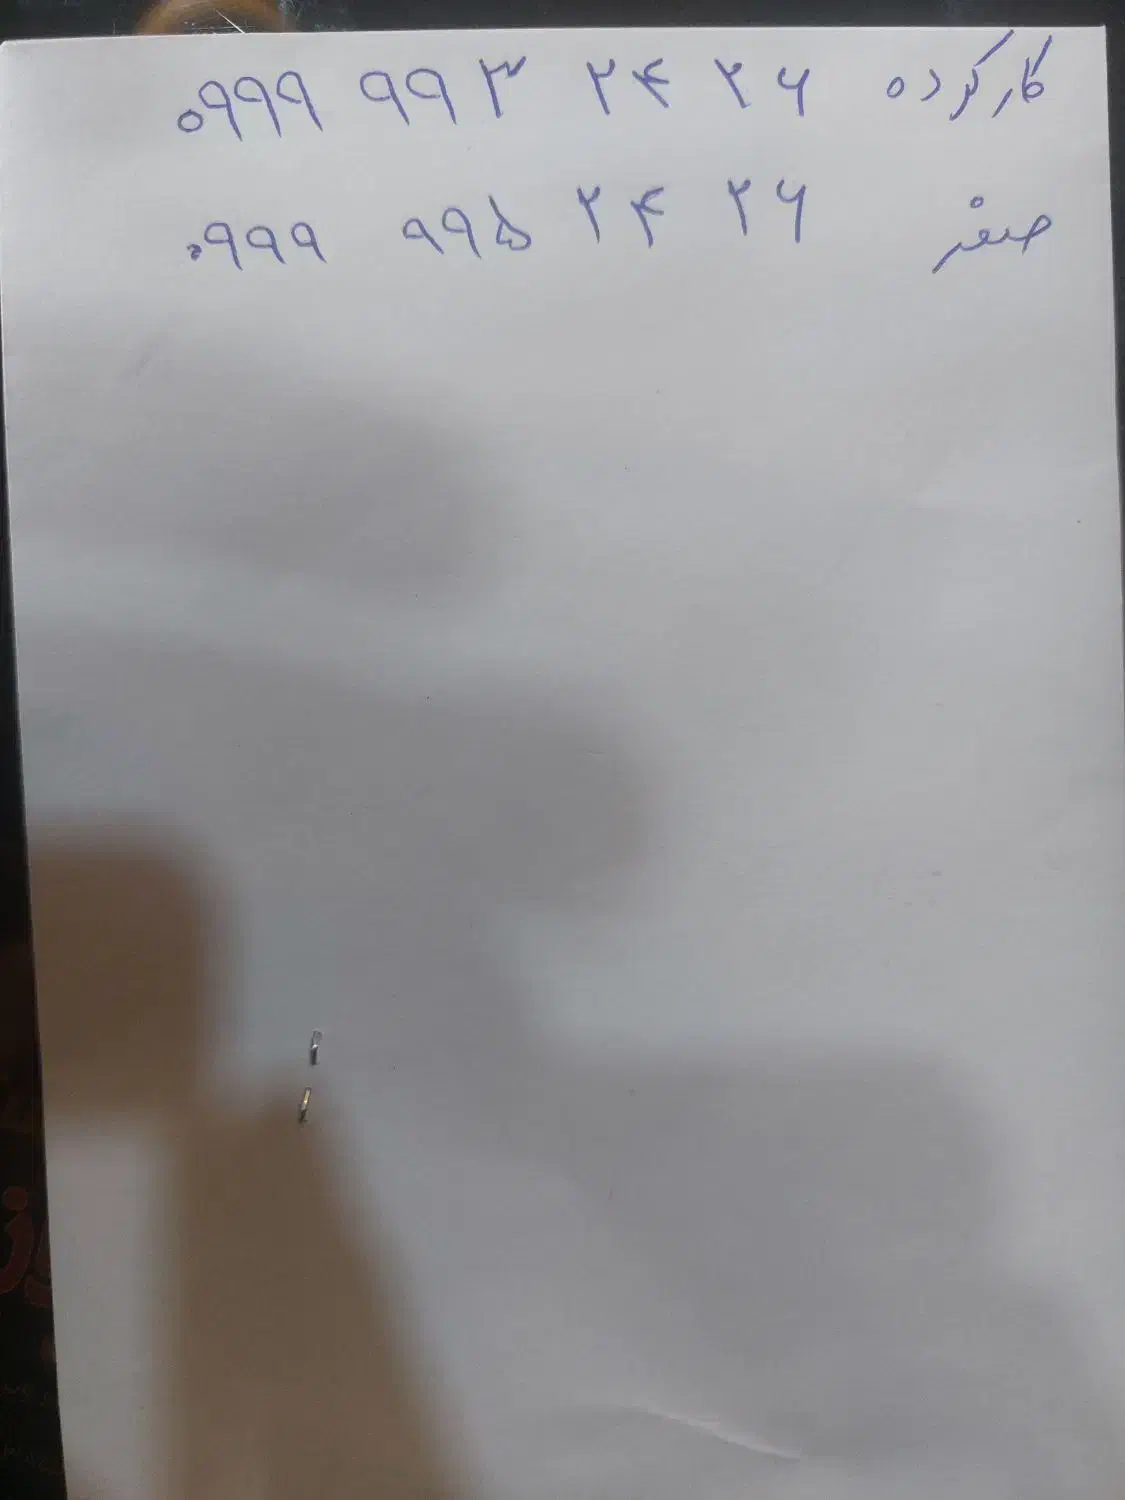 کارکرده ۰۹۹۹ ۹۹۳ ۲۴ ۲۶
صفر ۰۹۹۹ ۹۹۵ ۲۴ ۲۶